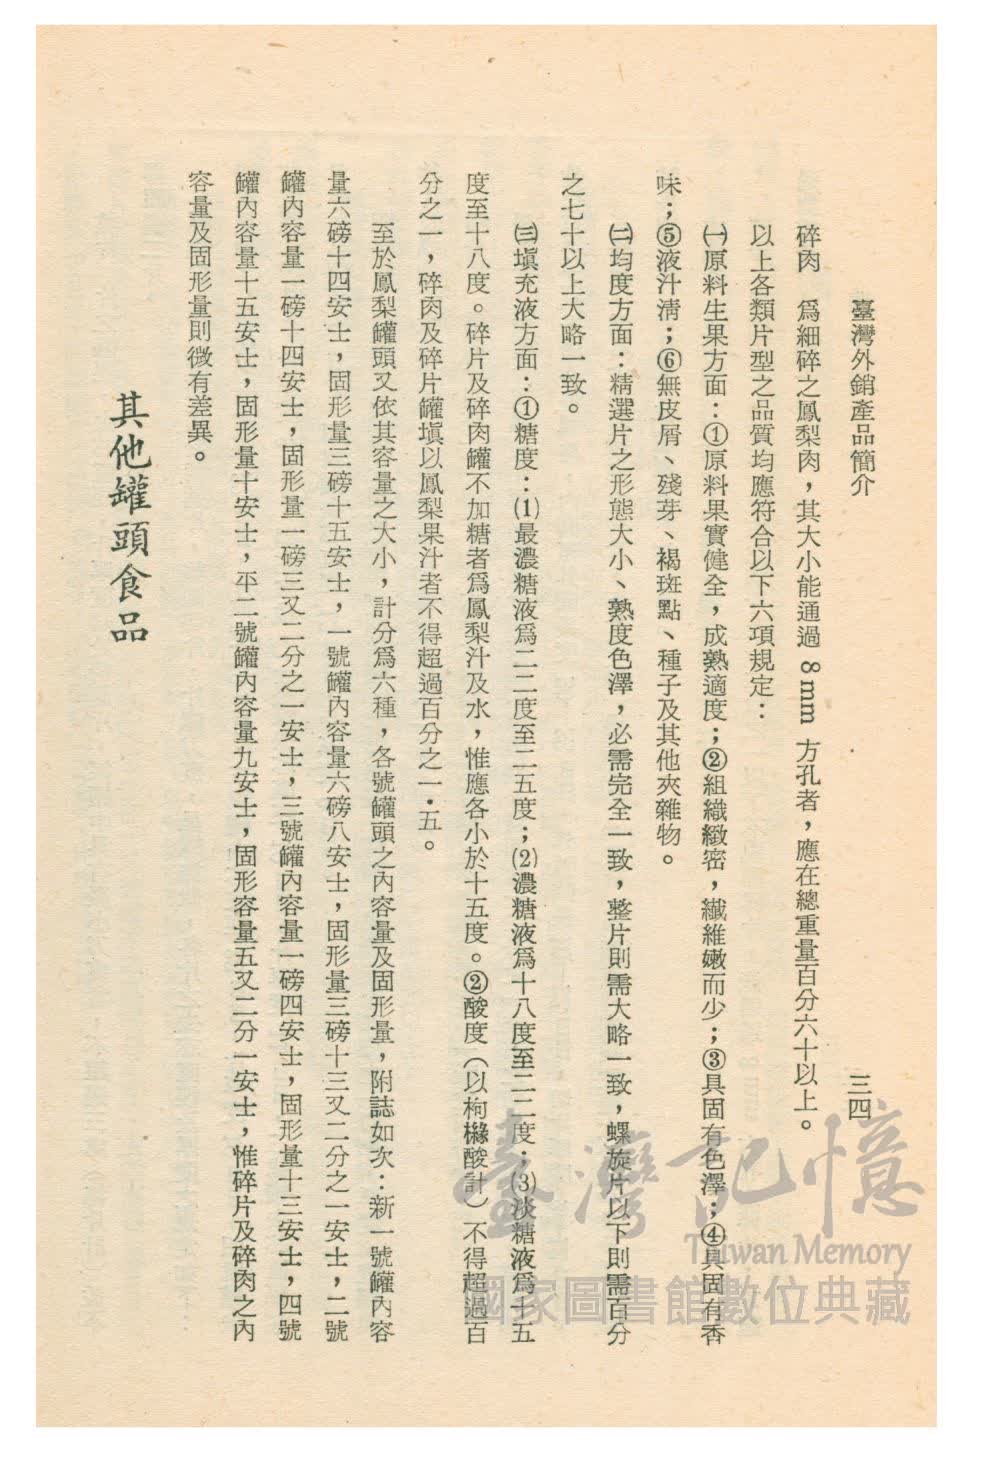 臺灣外銷產品簡介
三四
碎肉　爲細碎之鳳梨肉，其大小能通過 8mm 方孔者，應在總重量百分六十以上。
以上各類片型之品質均應符合以下六項規定：
㈠原料生果方面：①原料果實健全，成熟適度；②組織緻密，纖維嫩而少；③具固有色澤；④具固有香
味；⑤液汁淸；⑥無皮屑、殘芽、褐斑點、種子及其他夾雜物。
㈡均度方面：精選片之形態大小、熟度色澤，必需完全一致，整片則需大略一致，螺旋片以下則需百分
之七十以上大略一致。
㈢塡充液方面：①糖度：⑴最濃糖液爲二二度至二五度；⑵濃糖液爲十八度至二二度；⑶淡糖液爲十五
度至十八度。碎片及碎肉罐不加糖者爲鳳梨汁及水，惟應各小於十五度。②酸度（以枸櫞酸計）不得超過百
分之一，碎肉及碎片罐塡以鳳梨果汁者不得超過百分之一·五。
至於鳳梨罐頭又依其容量之大小，計分爲六種，各號罐頭之內容量及固形量，附誌如次：新一號罐內容
量六磅十四安士，固形量三磅十五安士，一號罐內容量六磅八安士，固形量三磅十三又二分之一安士，二號
罐內容量一磅十四安士，固形量一磅三又二分之一安士，三號罐內容量一磅四安士，固形量十三安士，四號
罐內容量十五安士，固形量十安士，平二號罐內容量九安士，固形容量五又二分一安士，惟碎片及碎肉之內
容量及固形量則微有差異。
其他罐頭食品
臺灣記憶
Taiwan Memory
國家圖書館數位典藏